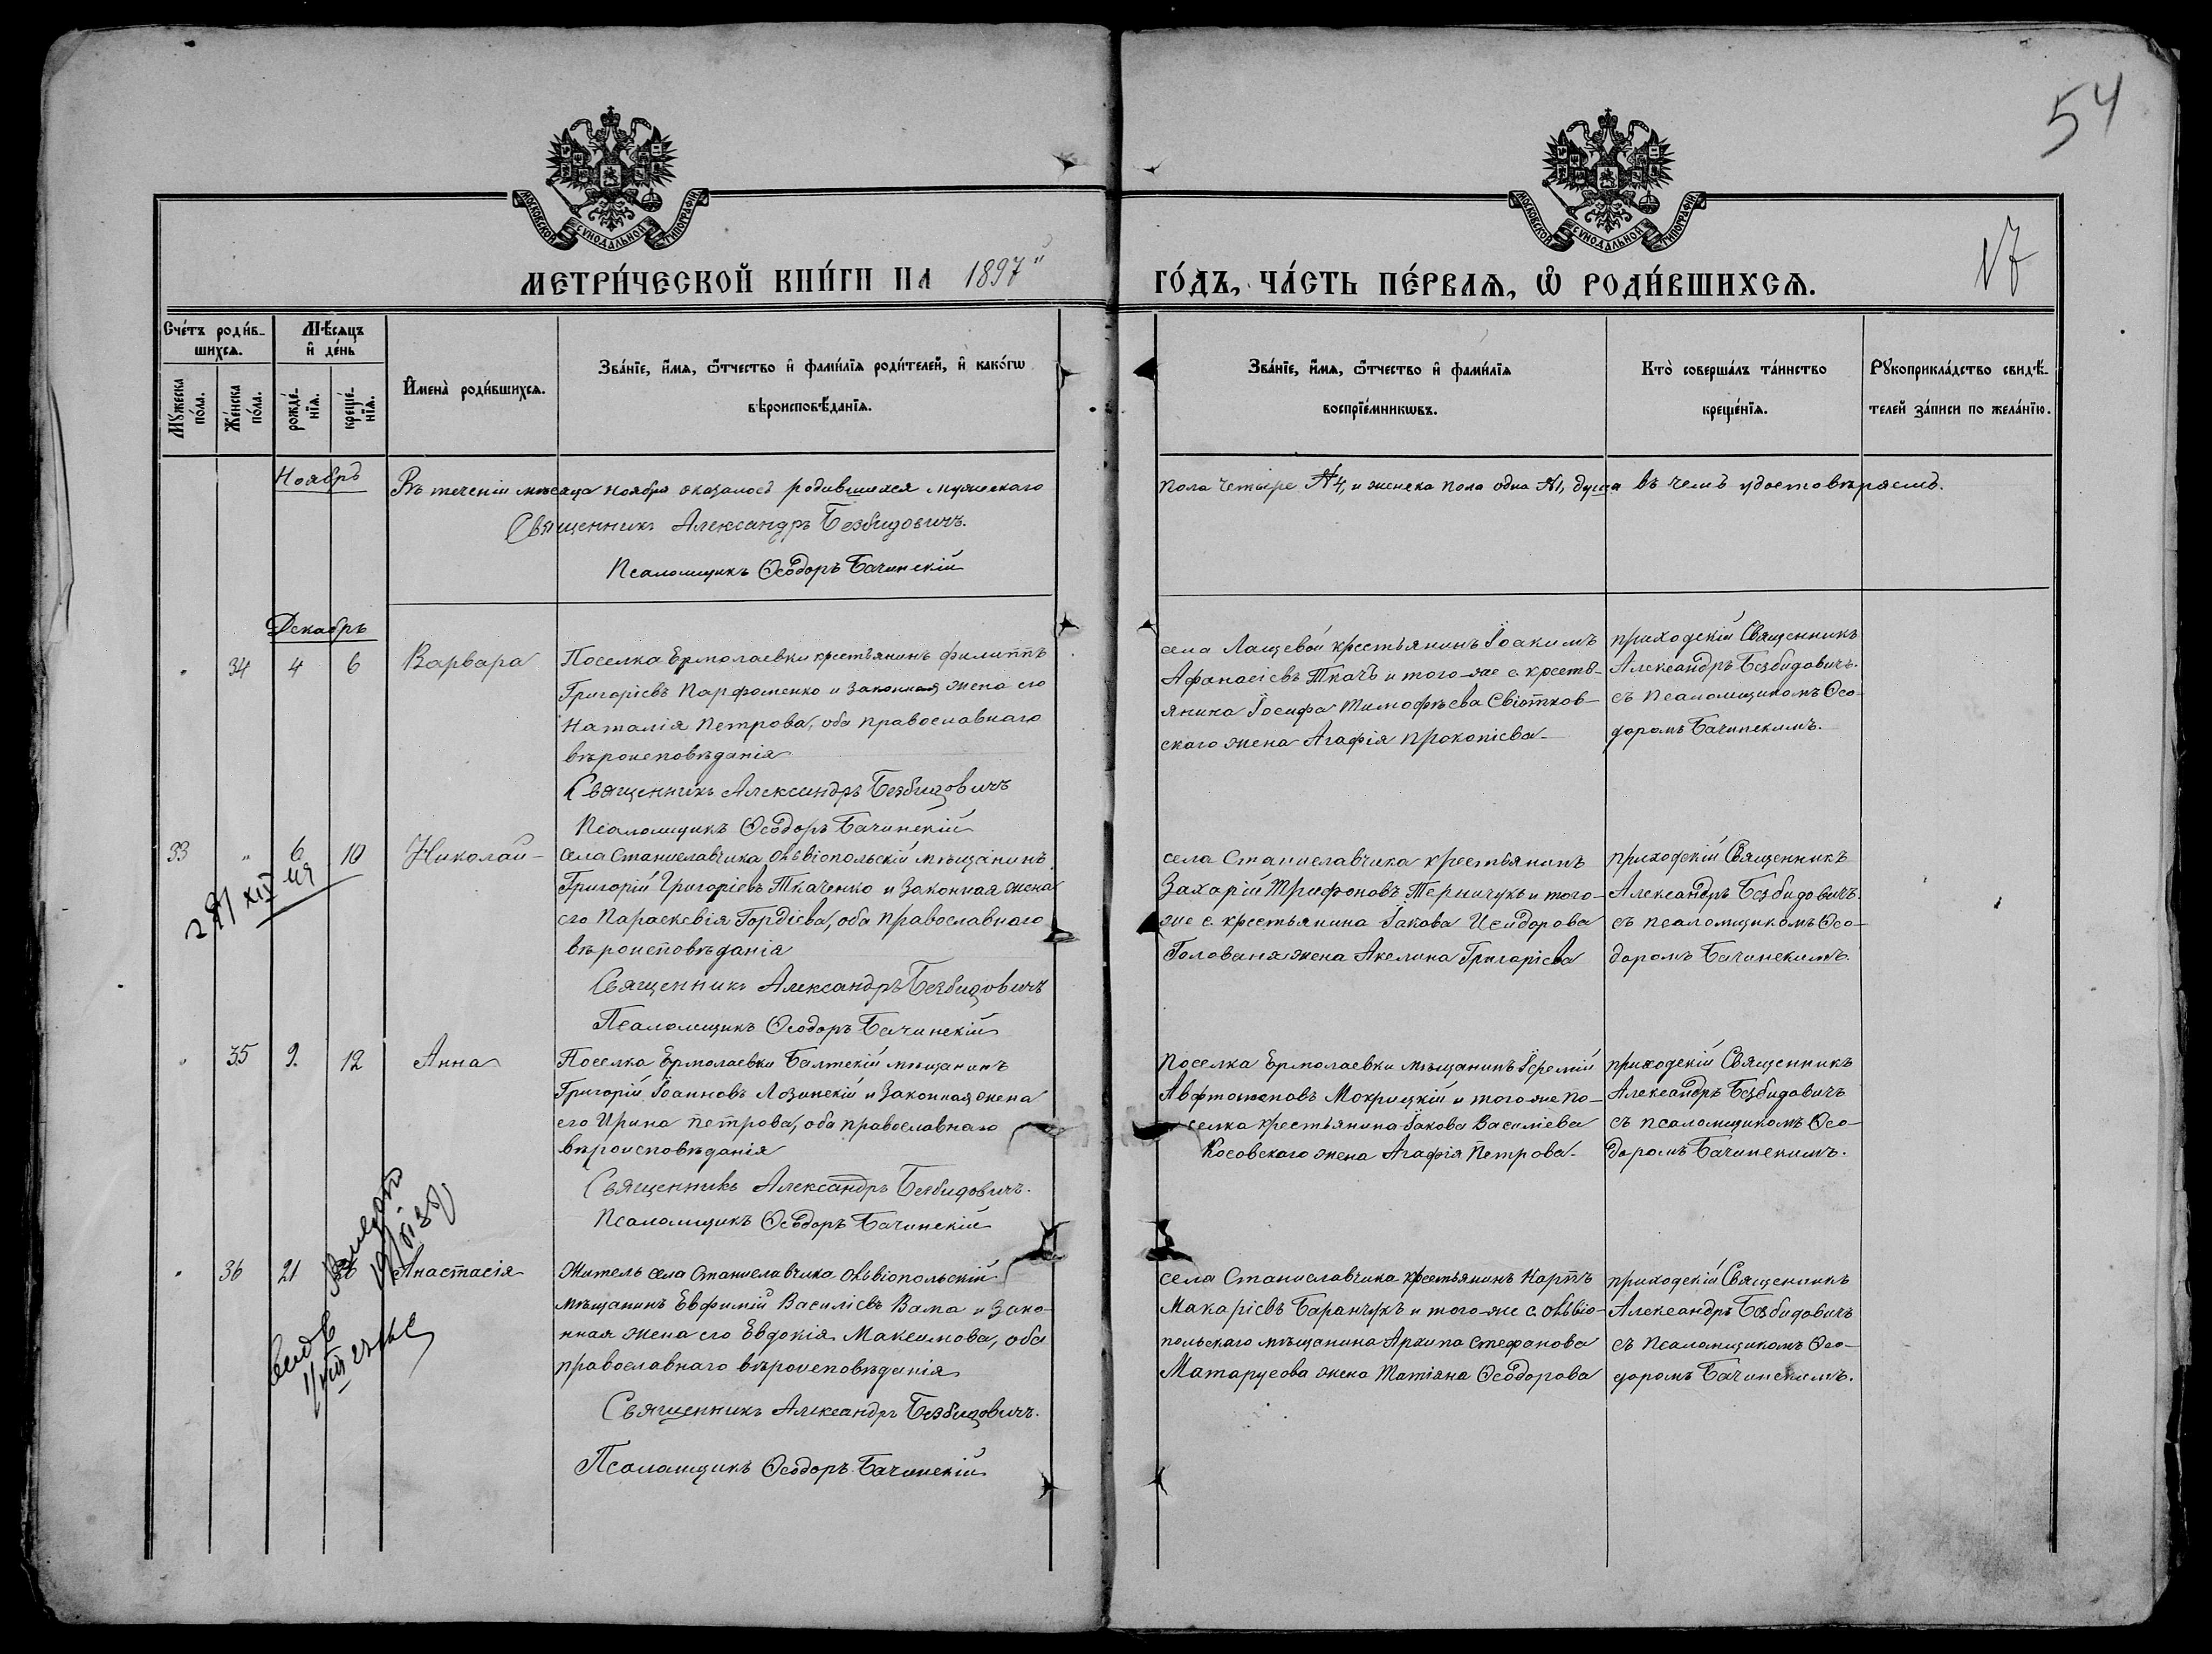 54
МОСКОВСКОЙ СѴНОДАЛЬНОЙ ТИПОГРАФІИ
МОСКОВСКОЙ СѴНОДАЛЬНОЙ ТИПОГРАФІИ
17
МЕТРИ́ЧЕСКОЙ КНИ́ГИ НА 1897"
ГО́ДЪ, ЧА́СТЬ ПЕ́РВАѦ, Ѽ РОДИ́ВШИХСѦ.
Сче́тъ роди́в-
шихсѧ.
Мꙋ́жеска по́ла.
Же́нска по́ла.
Мѣ́сѧцъ
и҆ де́нь
рожде́-нїѧ.
креще́-нїѧ.
И҆мена̀ роди́вшихсѧ.
Зва́нїе, и҆́мѧ, ѻ҆́тчество и҆ фами́лїѧ роди́телей, и҆ како́гѡ
вѣроисповѣ́данїѧ.
Зва́нїе, и҆́мѧ, ѻ҆́тчество и҆ фами́лїѧ
воспрїе́мникѡвъ.
Кто̀ соверша́лъ та́инство
креще́нїѧ.
Рꙋкоприкла́дство свидѣ́-
телей за́писи по жела́нїю.
Ноябрь
Въ теченіи мѣсяца ноября оказалось родившихся мужескаго
пола четыре №4, и женска пола одна №1, душа въ чемъ удостовѣряемъ.
Священникъ Александръ Безбидовичъ.
Псаломщикъ Ѳеодоръ Бачинскій
Декабрь
" 34 4 6 Варвара
Поселка Ермолаевки крестьянинъ Филиппъ
Григоріевъ Парфоменко и законная жена его
Наталія Петрова, оба православнаго
вѣроисповѣданія
Священникъ Александръ Безбидовичъ
Псаломщикъ Ѳеодоръ Бачинскій
села Лащевой крестьянинъ Іоакимъ
Афанасіевъ Ткачъ и того-же с. кресть-
янина Іосифа Тимофѣева Свіотков-
скаго жена Агафія Прокопіева
приходскій Священникъ
Александръ Безбидовичъ.
съ псаломщикомъ Ѳео-
доромъ Бачинскимъ.
33 " 6 10 Николай
села Станиславчика, Ольвіопольскій мѣщанинъ
Григорій Григоріевъ Ткаченко и законная жена
его Параскевія Гордіева, оба православнаго
вѣроисповѣданія
Священникъ Александръ Безбидовичъ
Псаломщикъ Ѳеодоръ Бачинскій
села Станиславчика крестьянинъ
Захарій Трифоновъ Терничукъ и того-
же с. крестьянина Іакова Исидорова
Голованя жена Акелина Григоріева
приходскій Священникъ
Александръ Безбидовичъ.
съ псаломщикомъ Ѳео-
доромъ Бачинскимъ.
" 35 9. 12 Анна
Поселка Ермолаевки Балтскій мѣщанинъ
Григорій Іоанновъ Лозинскій и законная жена
его Ирина Петрова, оба православнаго
вѣроисповѣданія
Священникъ Александръ Безбидовичъ.
Псаломщикъ Ѳеодоръ Бачинскій
Поселка Ермолаевки мѣщанинъ Іеремій
Авфтономовъ Мокрицкій и того-же по-
селка крестьянина Іакова Василіева
Косовскаго жена Агафія Петрова.
приходскій Священникъ
Александръ Безбидовичъ
съ псаломщикомъ Ѳео-
доромъ Бачинскимъ.
" 36 21 Анастасія
Житель села Станиславчика Ольвіопольскій
мѣщанинъ Евфимій Василіевъ Вама и зако-
нная жена его Евдокія Максимова, оба
православнаго вѣроисповѣданія
Священникъ Александръ Безбидовичъ.
Псаломщикъ Ѳеодоръ Бачинскій
села Станиславчика крестьянинъ Карпъ
Макаріевъ Баранчукъ и того-же с. Ольвіо-
польскаго мѣщанина Архипа Стефанова
Матарусова жена Татіяна Ѳеодорова
приходскій Священникъ
Александръ Безбидовичъ
съ псаломщикомъ Ѳео-
доромъ Бачинскимъ.